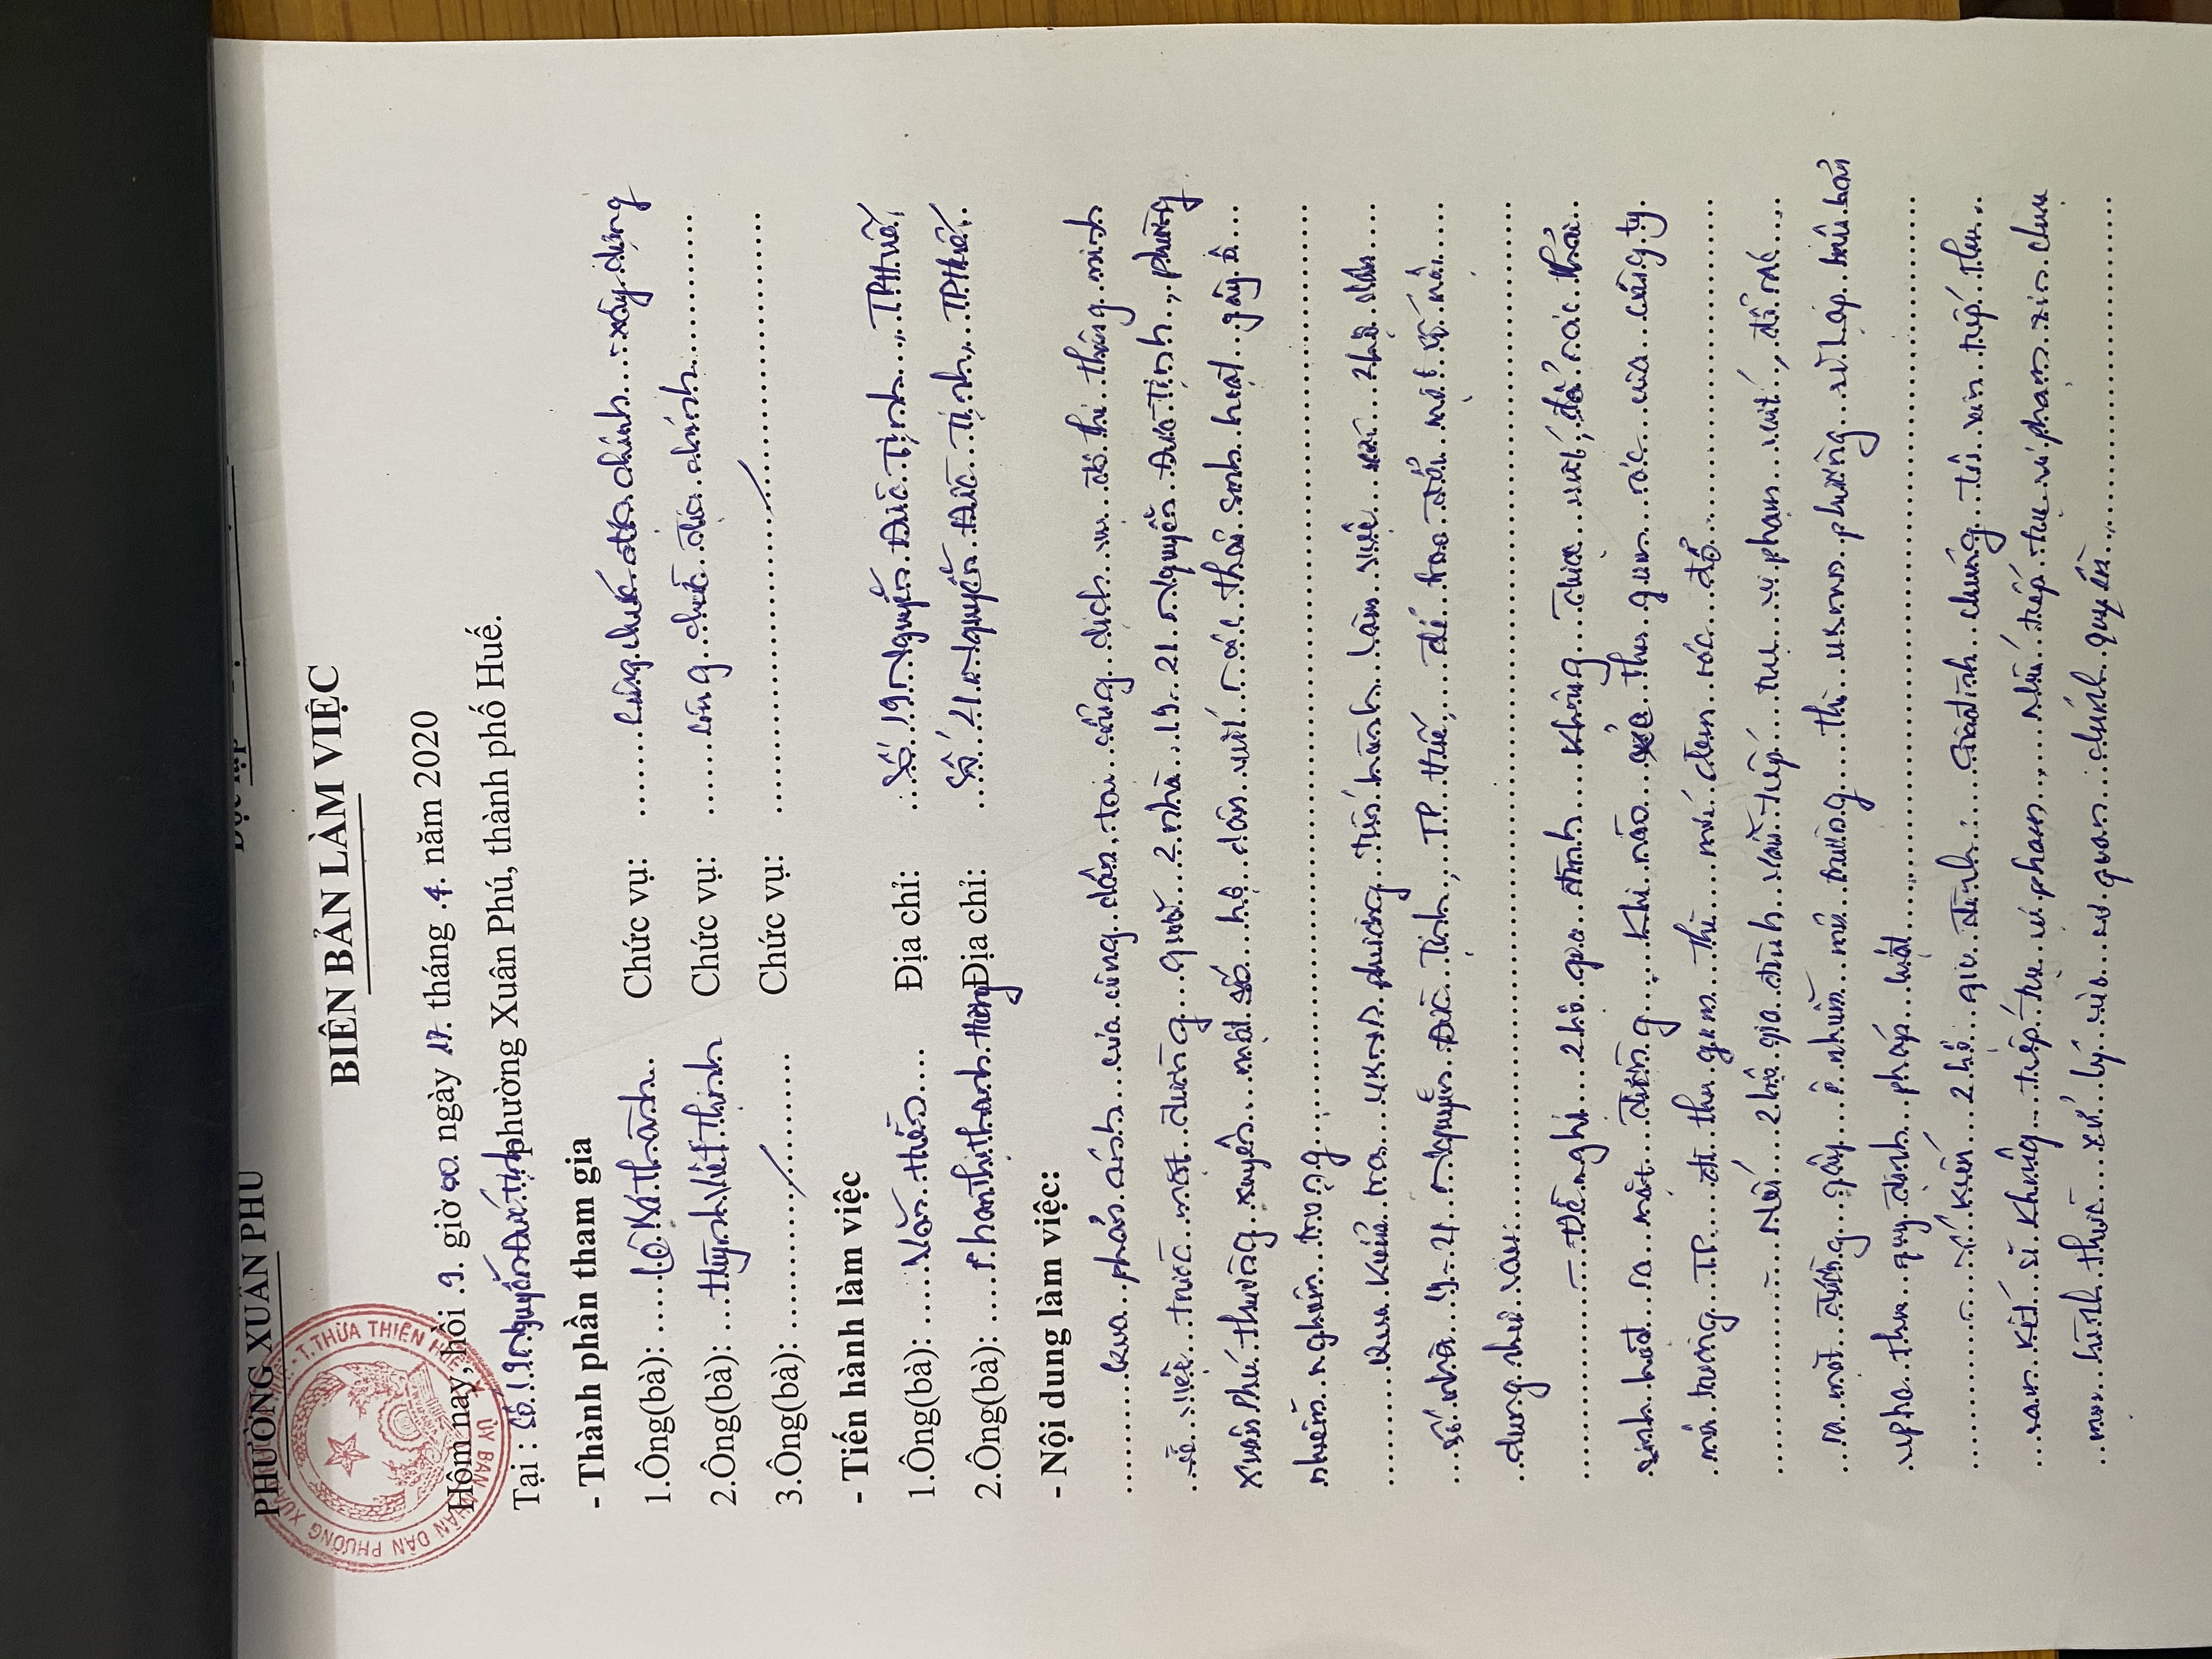 PHƯỜNG XUÂN PHÚ
Độc lập
T. THỪA THIÊN HUẾ
ỦY BAN NHÂN DÂN PHƯỜNG XUÂN
BIÊN BẢN LÀM VIỆC
Hôm nay, hồi .9. giờ 00. ngày 17. tháng .4. năm 2020
Tại : Số 19 Nguyễn Đức Tịnh phường Xuân Phú, thành phố Huế.
- Thành phần tham gia
1.Ông(bà): Lê Bá Thành Chức vụ: Công chức địa chính - xây dựng
2.Ông(bà): Huỳnh Viết Thịnh Chức vụ: công chức địa chính
3.Ông(bà): Chức vụ:
- Tiến hành làm việc
1.Ông(bà): Văn Địa chỉ: Số 19 Nguyễn Đức Tịnh, TP Huế,
2.Ông(bà): Phan Thị Thanh Hương Địa chỉ: Số 21 Nguyễn Đức Tịnh, TP Huế.
- Nội dung làm việc:
Qua phản ánh của công dân tại cổng dịch vụ đô thị thông minh
về việc trước mặt đường 2 nhà 19-21 Nguyễn Đức Tịnh, phường
Xuân Phú thường xuyên một số hộ dân vứt rác thải sinh hoạt gây ô
nhiễm nghiêm trọng
Qua kiểm tra UBND phường tiến hành làm việc với 2 hộ dân
số nhà 19-21 Nguyễn Đức Tịnh, TP Huế, để trao đổi một số nội
dung như sau:
- Đề nghị 2 hộ gia đình không được vứt, đổ rác thải
sinh hoạt ra mặt đường. Khi nào xe thu gom rác của công ty
môi trường TP đi thu gom thì mới đem rác đổ.
- Nếu 2 hộ gia đình vẫn tiếp tục vi phạm vứt, đổ rác
ra mặt đường gây ô nhiễm môi trường thì UBND phường sẽ lập biên bản
xử phạt theo quy định pháp luật
- Ý kiến 2 hộ gia đình: Gia đình chúng tôi xin tiếp thu
cam kết sẽ không tiếp tục vi phạm, nếu tiếp tục vi phạm xin chịu
mọi hình thức xử lý của cơ quan chính quyền.